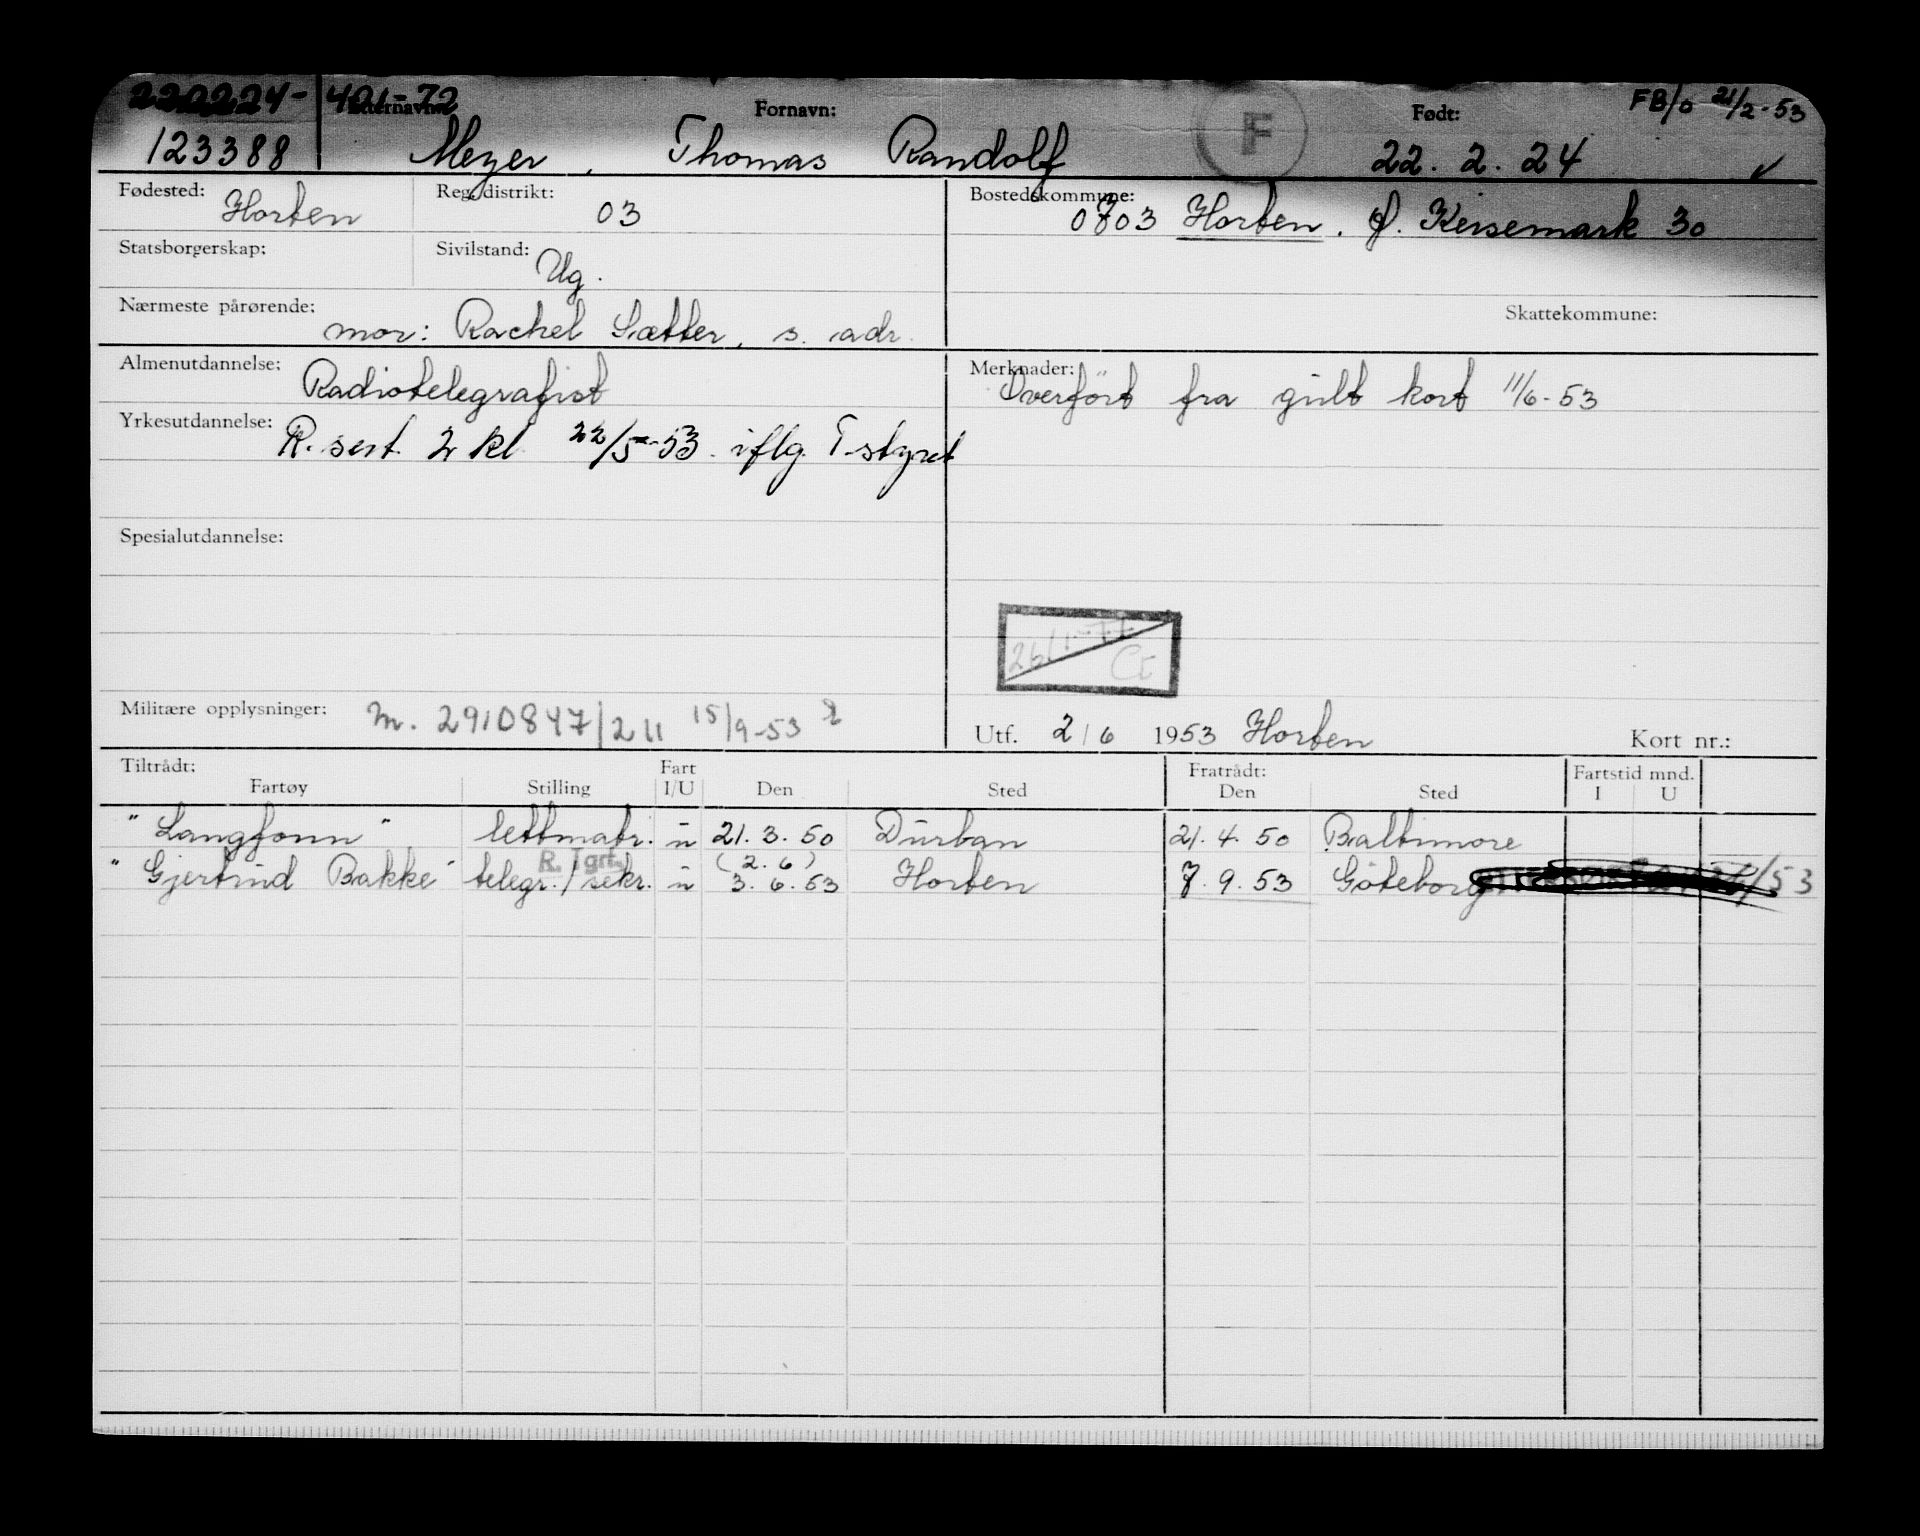 220224- 401-72
Etternavn: Fornavn: Født: FB/o 21/2-53
123388 Meyer, Thomas Randolf F 22.2.24 ✓
Fødested: Horten Reg. distrikt: 03 Bostedskommune: 0703 Horten. Ø. Keisemark 30
Statsborgerskap: Sivilstand: Ug.
Nærmeste pårørende: mor: Rachel Sætter, s. adr. Skattekommune:
Almenutdannelse: Radiotelegrafist Merknader: Overført fra gult kort 11/6-53
Yrkesutdannelse: R. sert. 2 kl 22/5-53. iflg. T-styret
Spesialutdannelse:
26/1-77 CE
Militære opplysninger: M. 2910847/211 15/9-53
Utf. 2/6 1953 Horten Kort nr.:
Tiltrådt: Fart Fratrådt: Fartstid mnd.
Fartøy Stilling I/U Den Sted Den Sted I U
"Langfonn" lettmatr. u 21.3.50 Durban 21.4.50 Baltimore
R. Tgrt. (2.6)
"Gjertrud Bakke" telegr./sekr. u 3.6.53 Horten 7.9.53 Göteborg /53